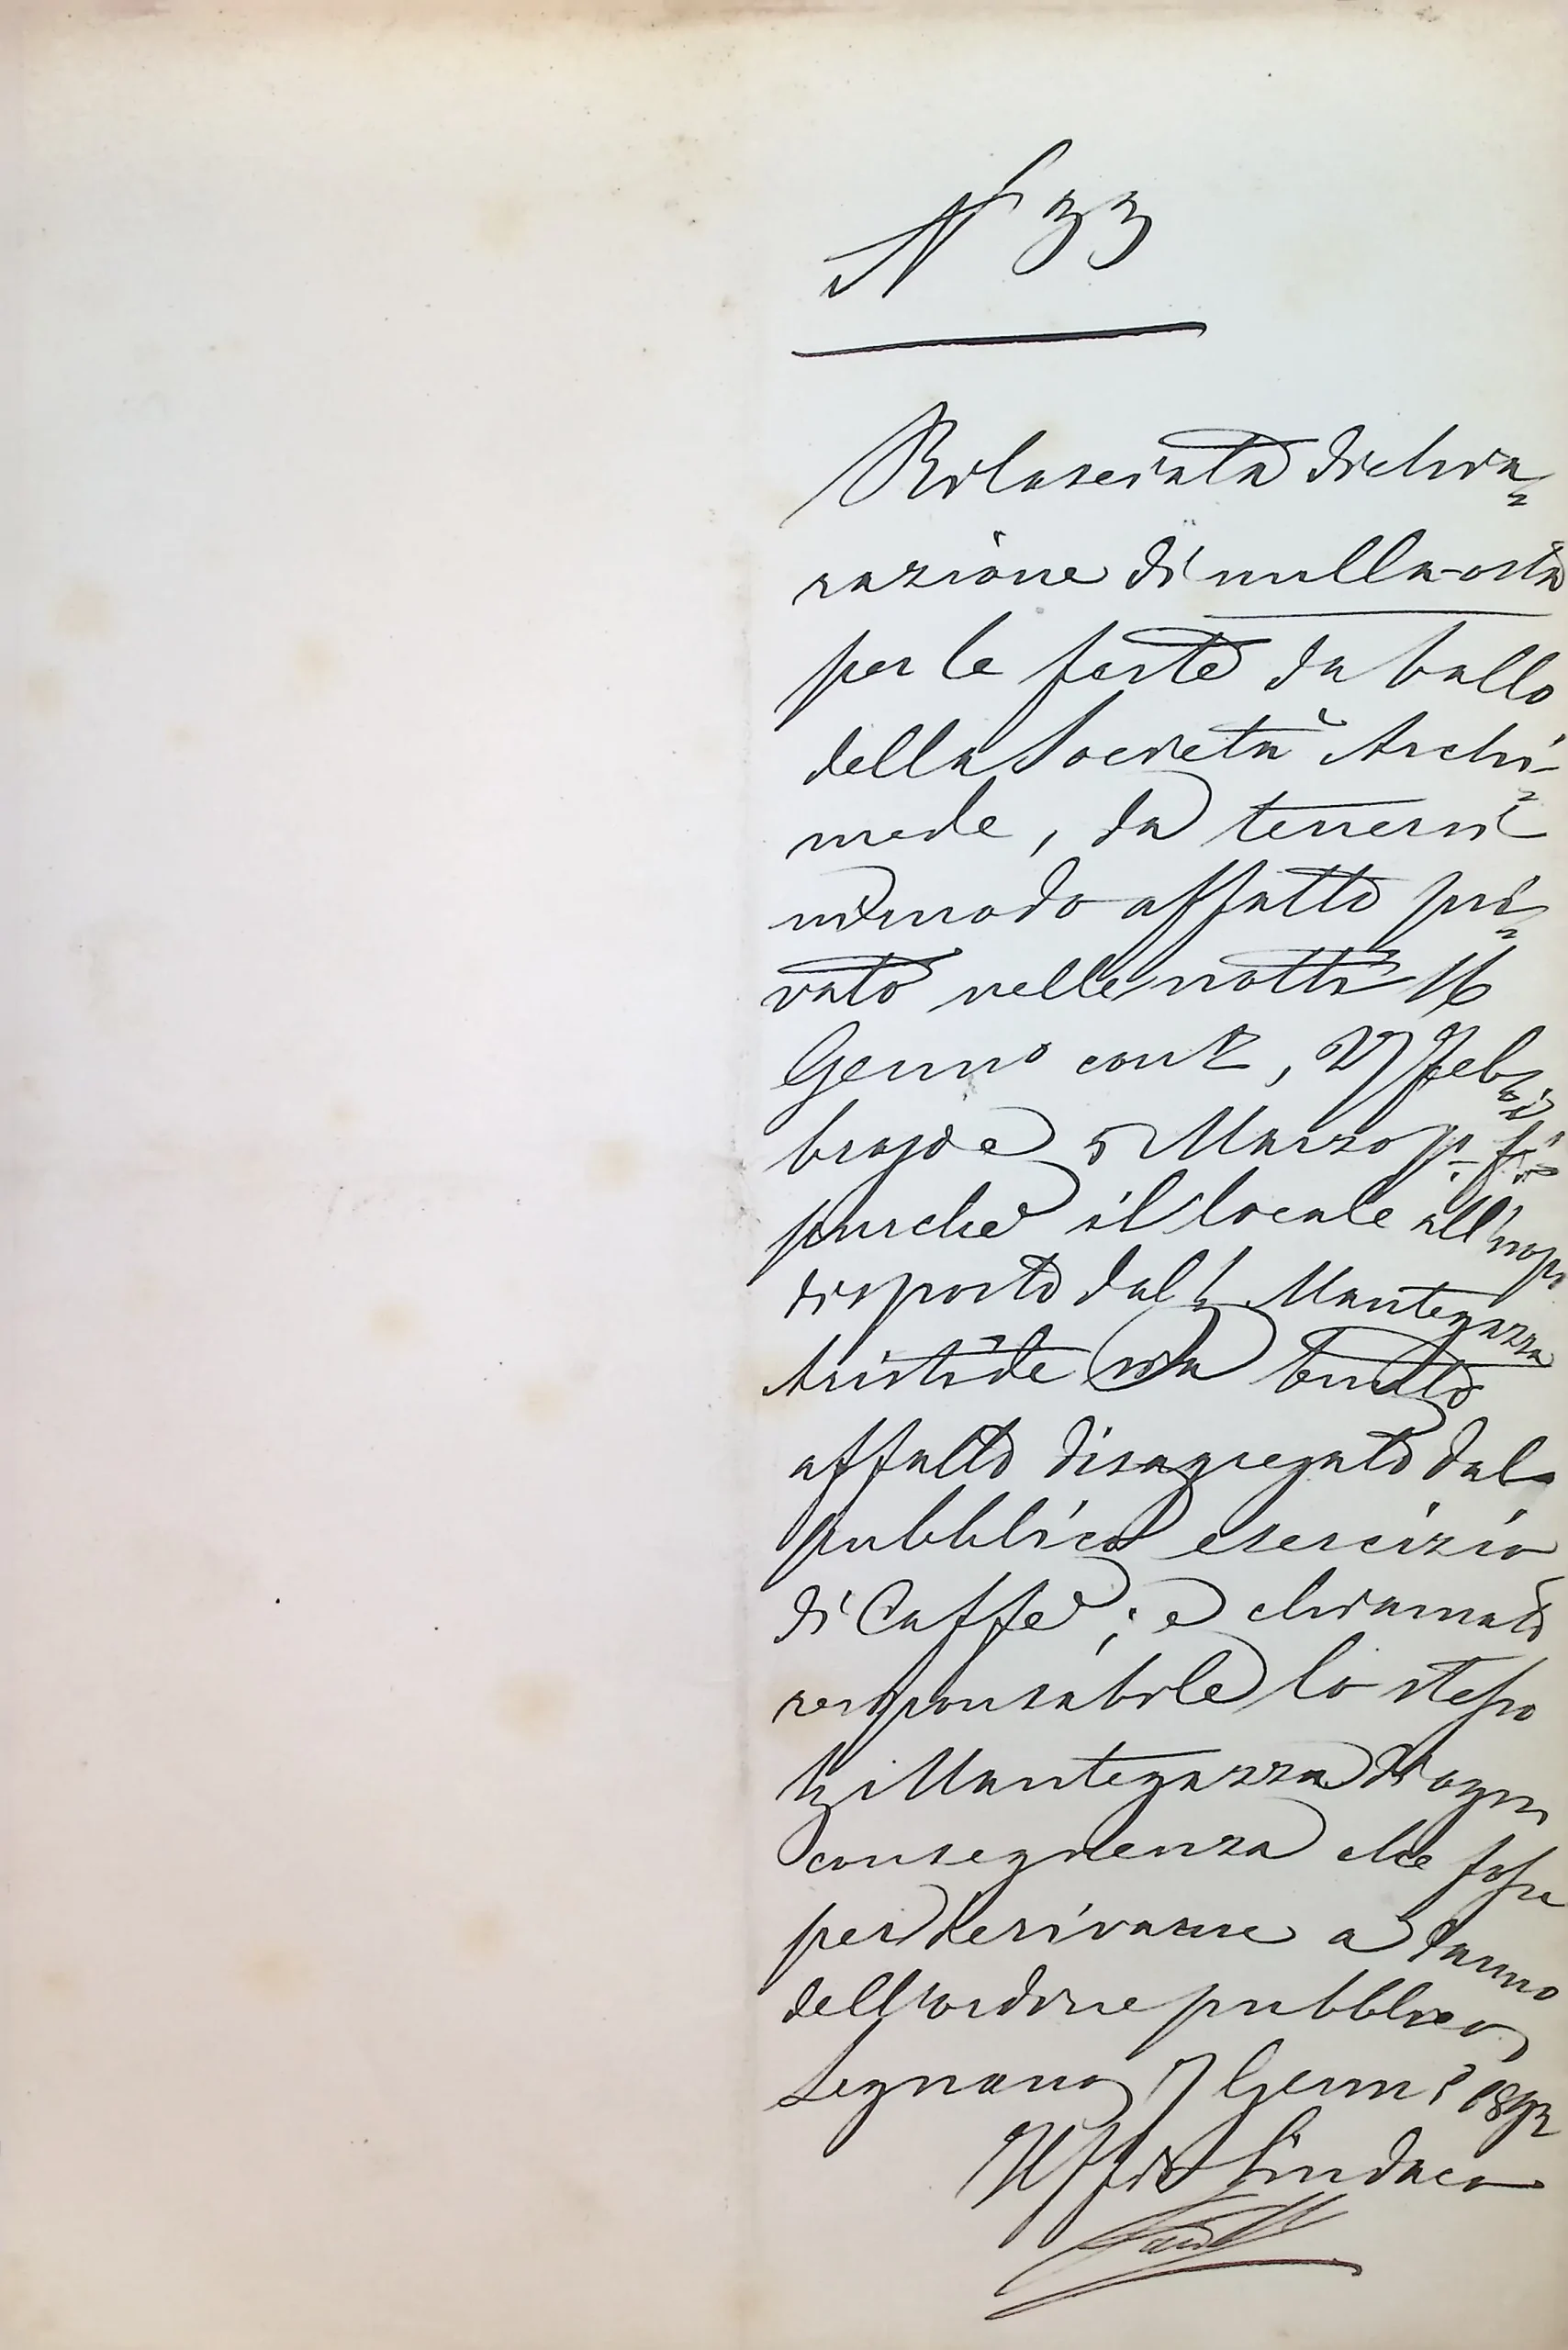 N° 33
Rilasciata dichia=
razione di nulla-osta
per le feste da ballo
della Società Archi=
mede, da tenersi
in modo affatto pri=
vato nelle notti 16
Genn° corrte, 27 Feb=
brajo e 5 Marzo p.i f.i
purché il locale all'uopo
disposto dal Sig. Mantegazza
Aristide sia tenuto
affatto disagregato dal
pubblico esercizio
di Caffè; e chiamato
responsabile lo stesso
Sig. Mantegazza di ogni
conseguenza che fosse
per derivarne a danno
dell'ordine pubblico
Legnano 7 Genn°
Il ff di Sindaco